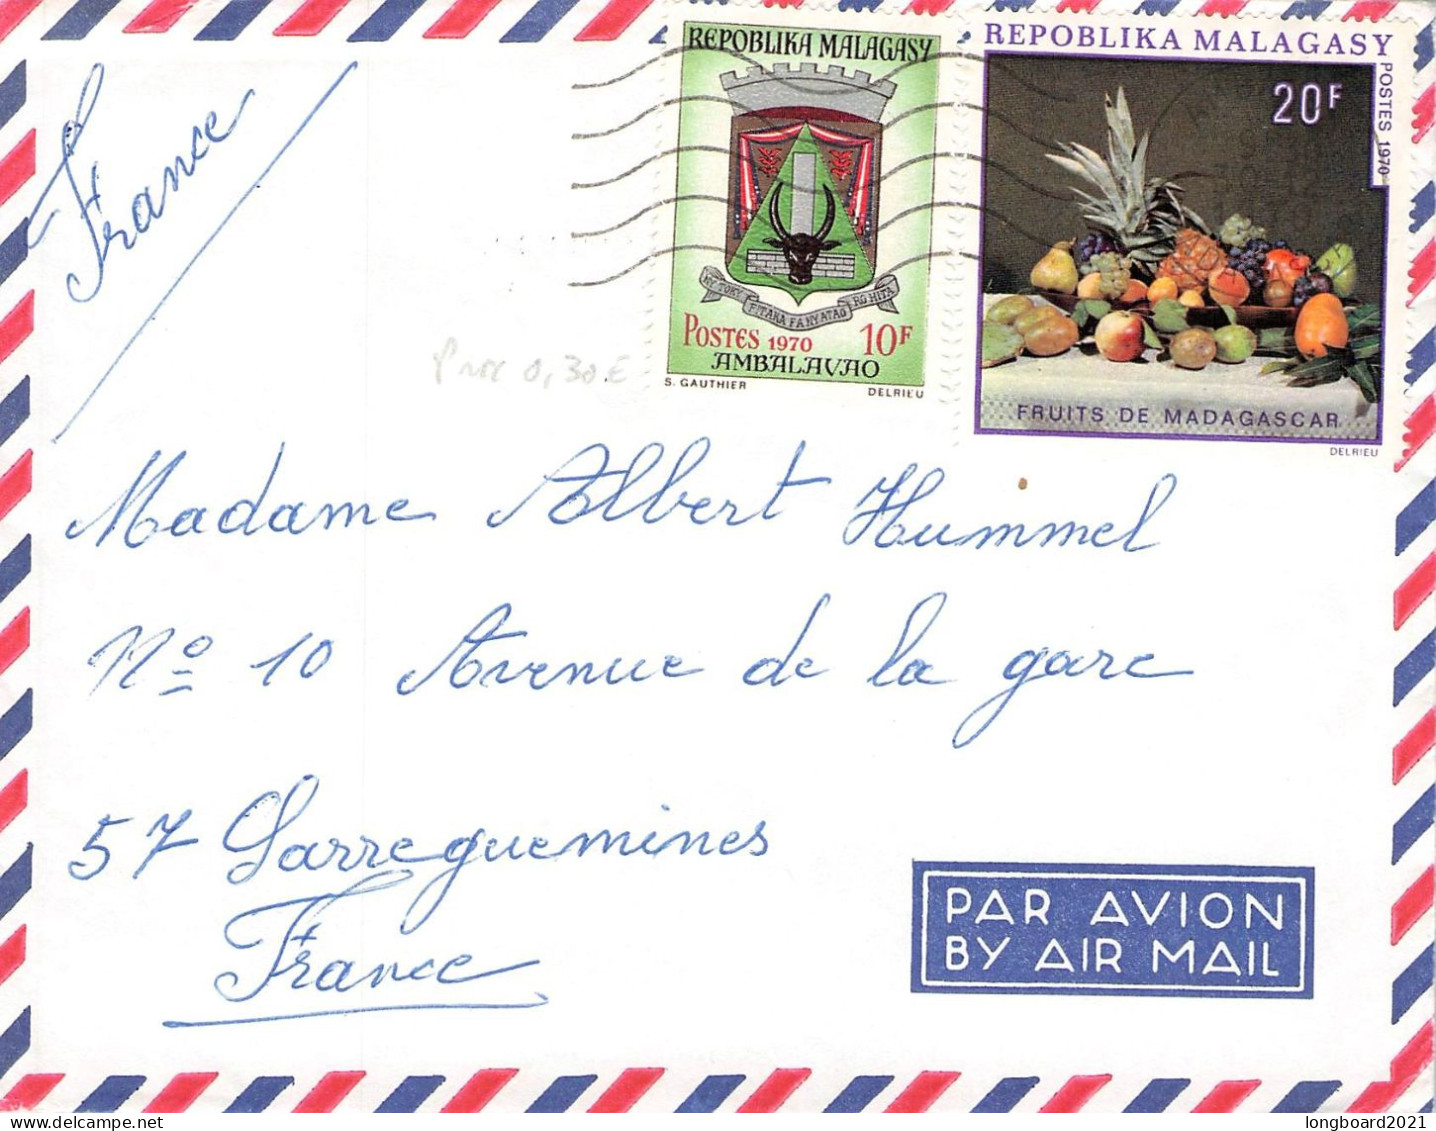 France
REPOBLIKA MALAGASY
POSTES 1970 10F
AMBALAVAO
S. GAUTHIER DELRIEU
REPOBLIKA MALAGASY
20F
POSTES 1970
FRUITS DE MADAGASCAR
DELRIEU
0,30 €
Madame Albert Hummel
No 10 Avenue de la gare
57 Sarreguemines
France
PAR AVION
BY AIR MAIL
delcampe.net
longboard2021